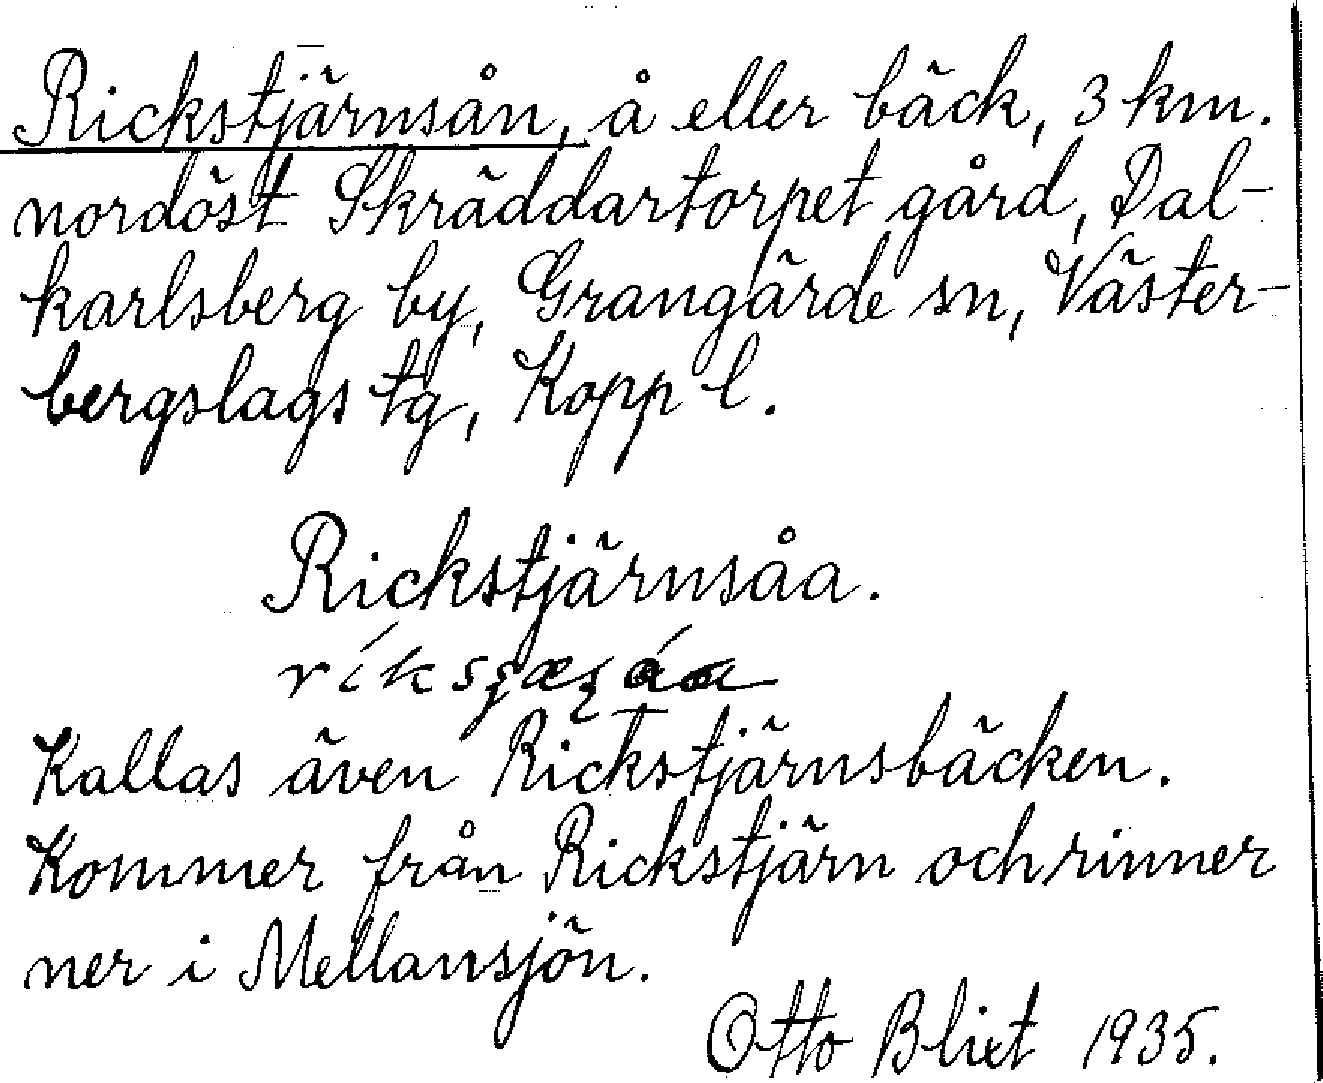 Rickstjärnsån, å eller bäck, 3 km.
nordöst Skräddartorpet gård, Dal-
karlsberg by, Grangärde sn, Väster-
bergslags tg, Kopp l.
Rickstjärnsåa.
Kallas även Rickstjärnsbäcken.
Kommer från Rickstjärn och rinner
ner i Mellansjön.
Otto Blixt 1935.